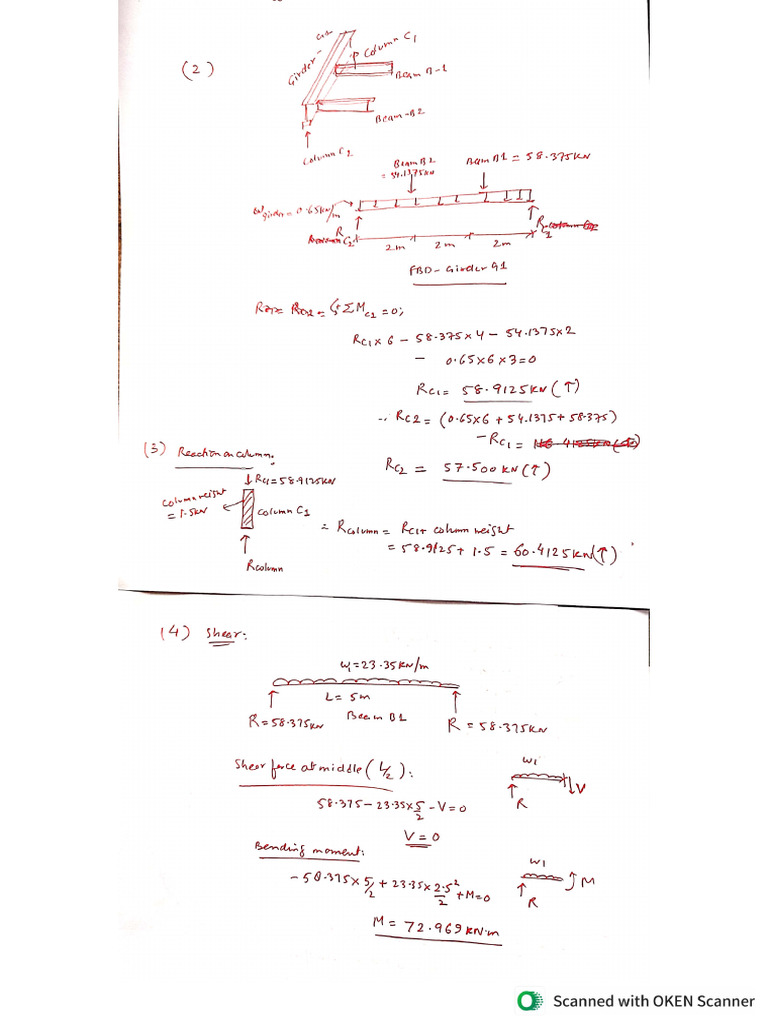 (2)
Girder - G1
Column C1
Beam B-1
Beam-B2
Column C2
Beam B2
= 54.1375KN
Beam B1 = 58.375KN
Wgirder = 0.65KN/m
R C2
R C1
2m 2m 2m
FBD - Girder G1
ΣM C2 = 0;
RC1 x 6 - 58.375x4 - 54.1375x2
- 0.65x6x3=0
RC1 = 58.9125KN (↑)
∴ RC2 = (0.65x6 + 54.1375 + 58.375)
- RC1 =
RC2 = 57.500 KN (↑)
(3) Reaction on column:
↓ RC1 = 58.9125KN
Column weight
= 1.5KN
Column C1
Rcolumn
= Rcolumn = RC1 + column weight
= 58.9125 + 1.5 = 60.4125KN (↑)
(4) Shear:
W1 = 23.35 KN/m
L = 5m
Beam B1
R = 58.375KN
R = 58.375KN
Shear force at middle (L/2):
W1
R
V
58.375 - 23.35x5/2 - V = 0
V = 0
Bending moment:
W1
R
M
-58.375 x 5/2 + 23.35 x 2.5²/2 + M = 0
M = 72.969 KN.m
Scanned with OKEN Scanner